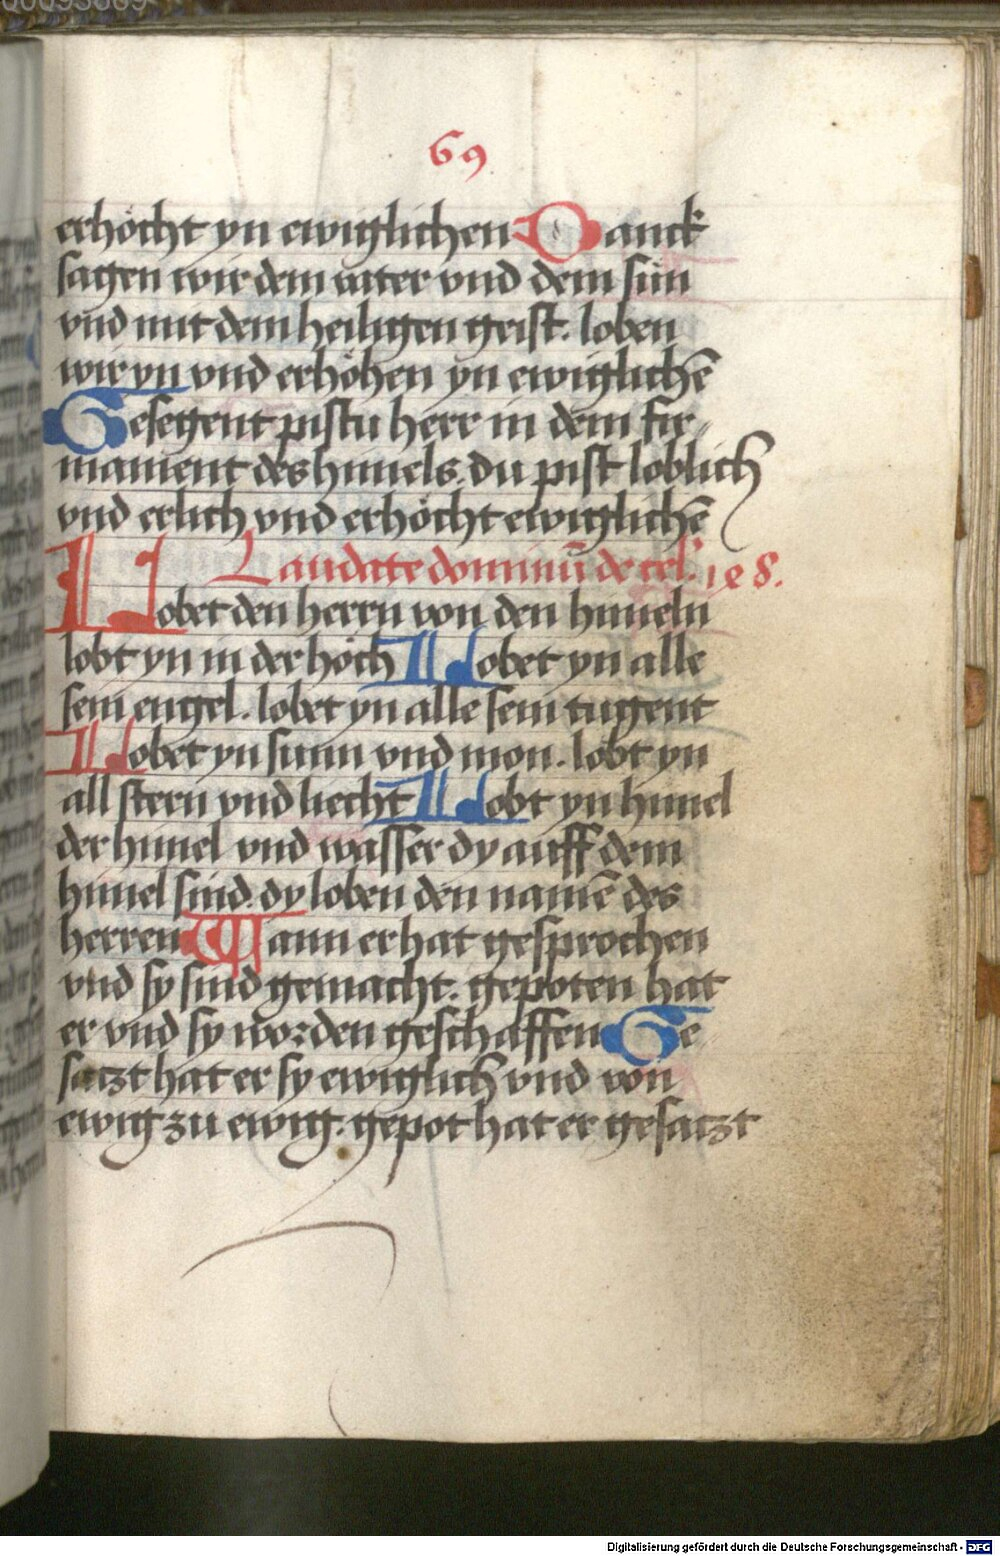 69
erhöcht yn ewiglichen Danck
sagen wir dem vater vnd dem sün
vnd mit dem heiligen geist. loben
wir yn vnd erhöhen yn ewiglichē
Gesegent pistu herr in dem fir⸗
mament des himels. du pist loblich
vnd erlich vnd erhöcht ewiglichē
Laudate dominū de cel.
Lobet den herrn von den himeln
lobt yn in der höch Lobet yn alle
sein engel. lobet yn alle sein tugent
Lobet yn sunn vnd mon. lobt yn
all stern vnd liecht Lobt yn himel
der himel vnd wasser dy auff dem
himel sind. dy loben den namē des
herren Wann er hat gesprochen
vnd sy sind gemacht. gepoten hat
er vnd sy worden geschaffen Ge
satzt hat er sy ewiglich vnd von
ewig zu ewig. gepot hat er gesatzt
Digitalisierung gefördert durch die Deutsche Forschungsgemeinschaft - DFG